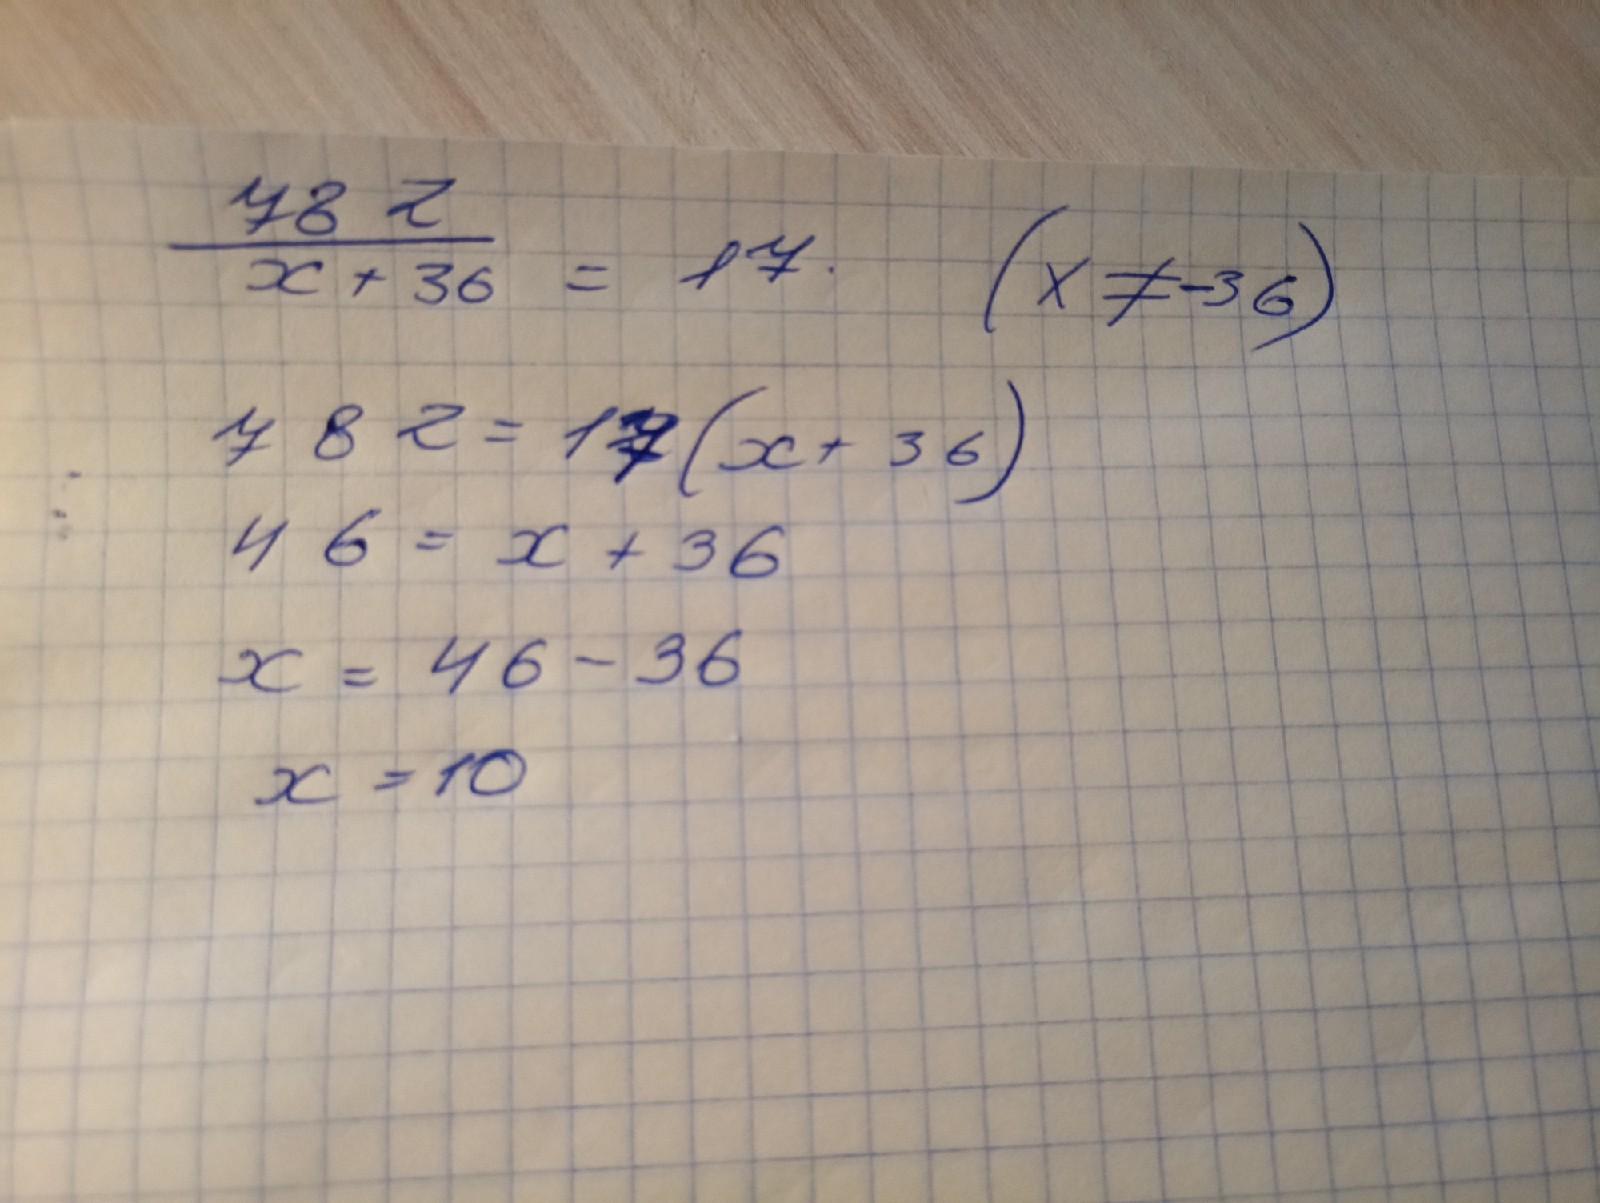 782
x + 36 = 17. (x ≠ -36)
782 = 17(x + 36)
46 = x + 36
x = 46 - 36
x = 10